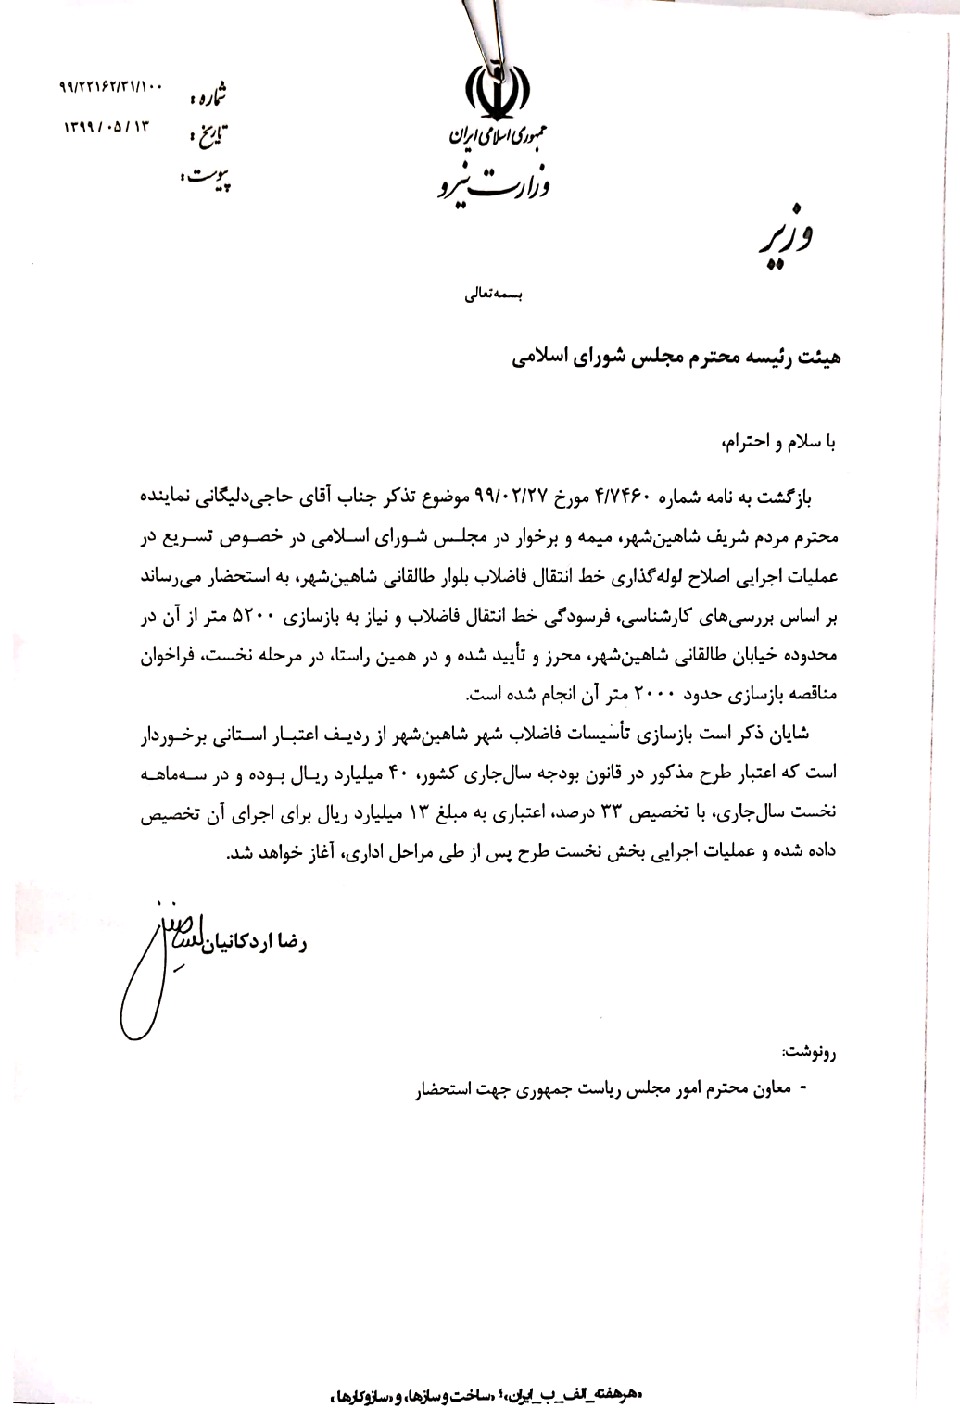 شماره: ۹۹/۲۲۱۶۲/۳۱/۱۰۰
تاریخ: ۱۳۹۹/۰۵/۱۳
پیوست:
جمهوری اسلامی ایران
وزارت نیرو
وزیر
بسمه‌تعالی
هیئت رئیسه محترم مجلس شورای اسلامی
با سلام و احترام،
بازگشت به نامه شماره ۴/۷۴۶۰ مورخ ۹۹/۰۲/۲۷ موضوع تذکر جناب آقای حاجی‌دلیگانی نماینده
محترم مردم شریف شاهین‌شهر، میمه و برخوار در مجلس شورای اسلامی در خصوص تسریع در
عملیات اجرایی اصلاح لوله‌گذاری خط انتقال فاضلاب بلوار طالقانی شاهین‌شهر، به استحضار می‌رساند
بر اساس بررسی‌های کارشناسی، فرسودگی خط انتقال فاضلاب و نیاز به بازسازی ۵۲۰۰ متر از آن در
محدوده خیابان طالقانی شاهین‌شهر، محرز و تأیید شده و در همین راستا، در مرحله نخست، فراخوان
مناقصه بازسازی حدود ۲۰۰۰ متر آن انجام شده است.
شایان ذکر است بازسازی تأسیسات فاضلاب شهر شاهین‌شهر از ردیف اعتبار استانی برخوردار
است که اعتبار طرح مذکور در قانون بودجه سال‌جاری کشور، ۴۰ میلیارد ریال بوده و در سه‌ماهه
نخست سال‌جاری، با تخصیص ۳۳ درصد، اعتباری به مبلغ ۱۳ میلیارد ریال برای اجرای آن تخصیص
داده شده و عملیات اجرایی بخش نخست طرح پس از طی مراحل اداری، آغاز خواهد شد.
رضا اردکانیان
رونوشت:
- معاون محترم امور مجلس ریاست جمهوری جهت استحضار
«هرهفته_الف_ب_ایران»؛ «ساخت‌وسازها» و «سازوکارها»